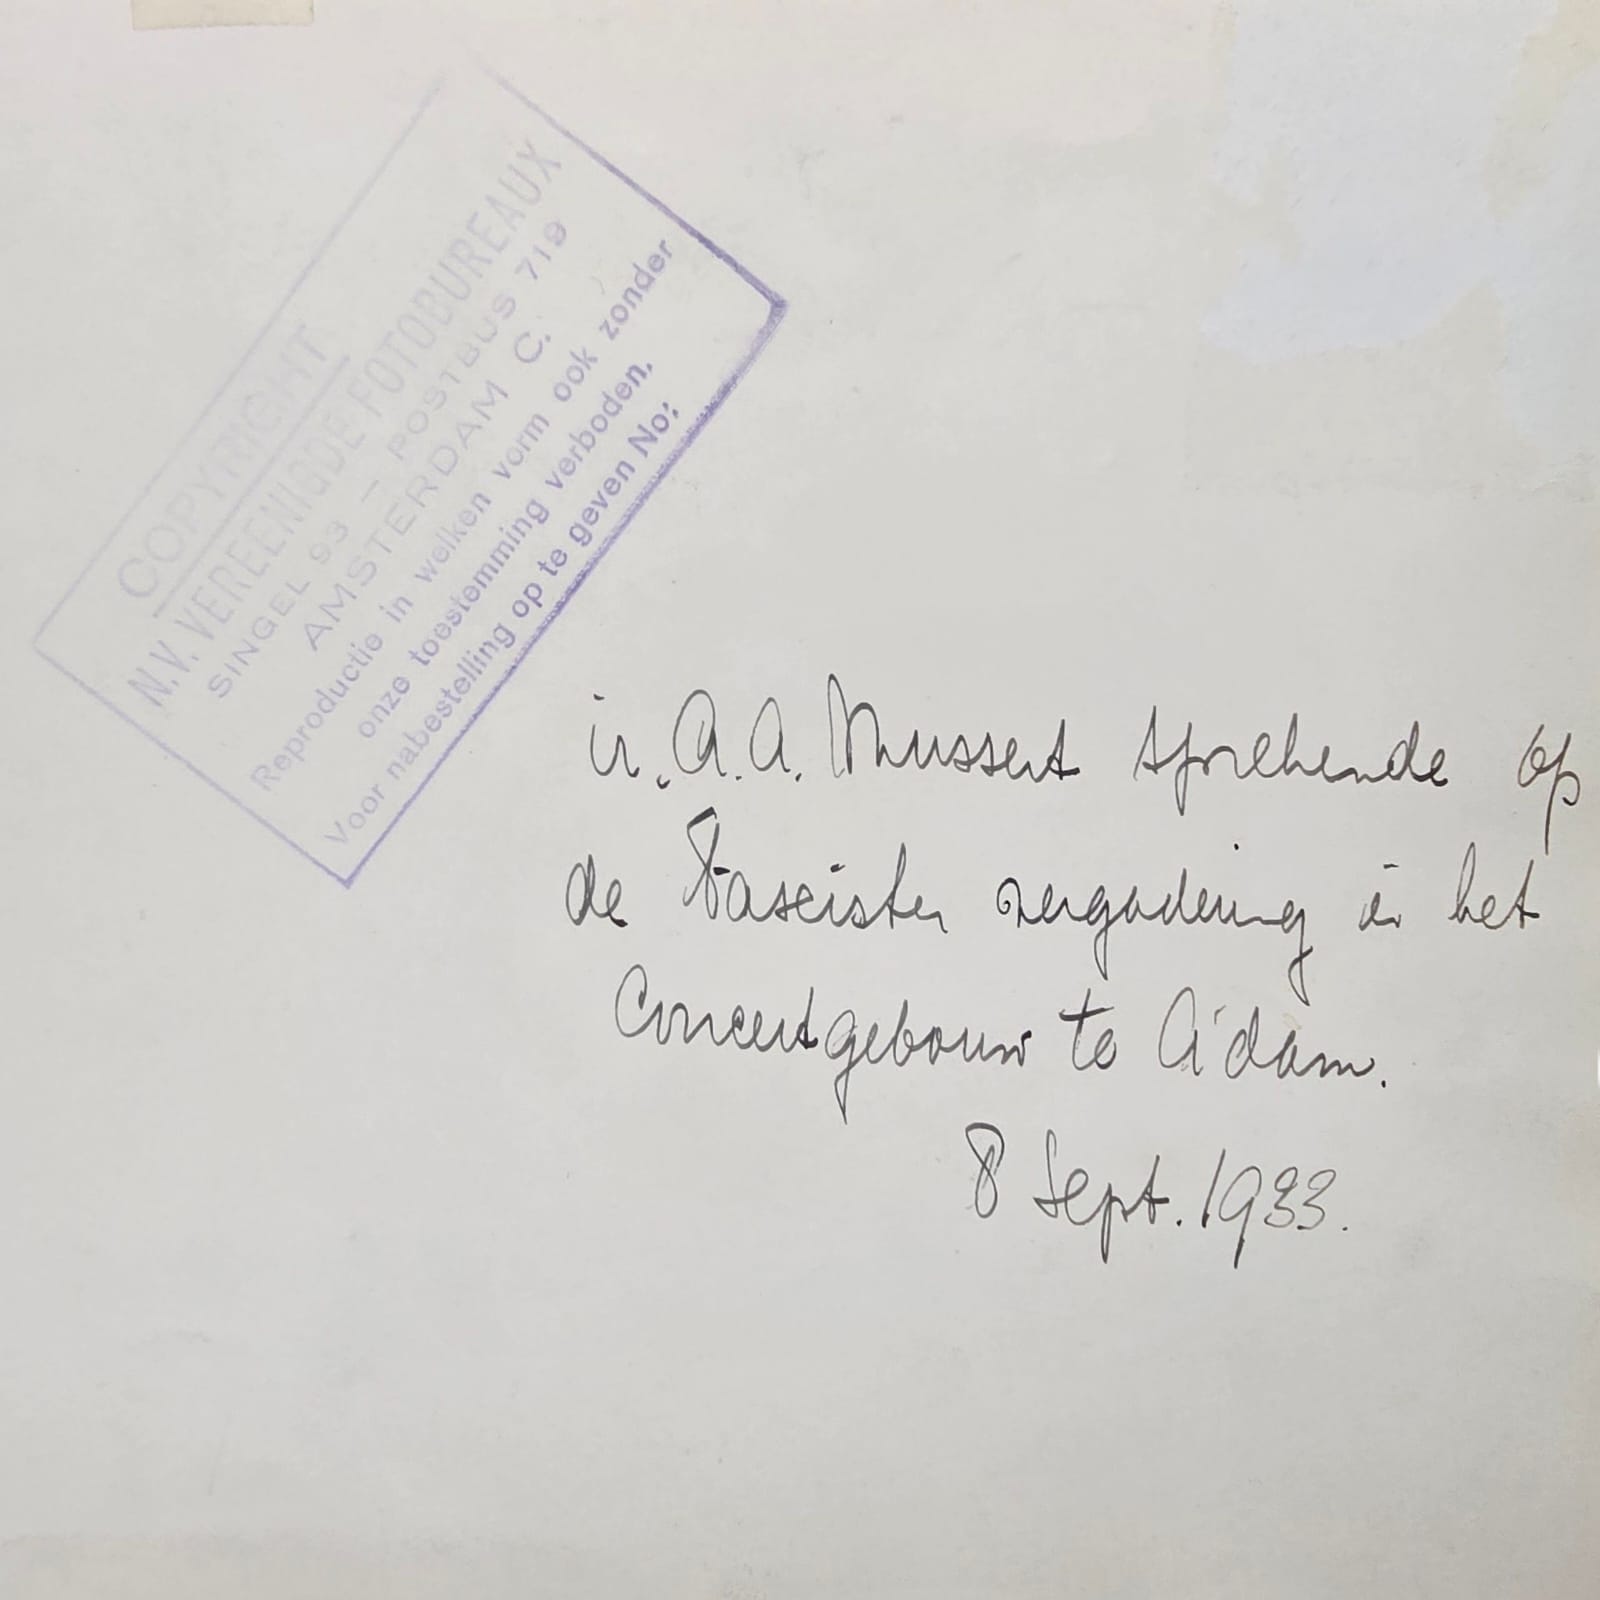 COPYRIGHT
N.V. VEREENIGDE FOTOBUREAUX
SINGEL 93 – POSTBUS 719
AMSTERDAM C.
Reproductie in welken vorm ook zonder
onze toestemming verboden.
Voor nabestelling op te geven No:
ir. A.A. Mussert sprekende op
de Fascisten vergadering in het
Concertgebouw te A'dam.
8 Sept. 1933.